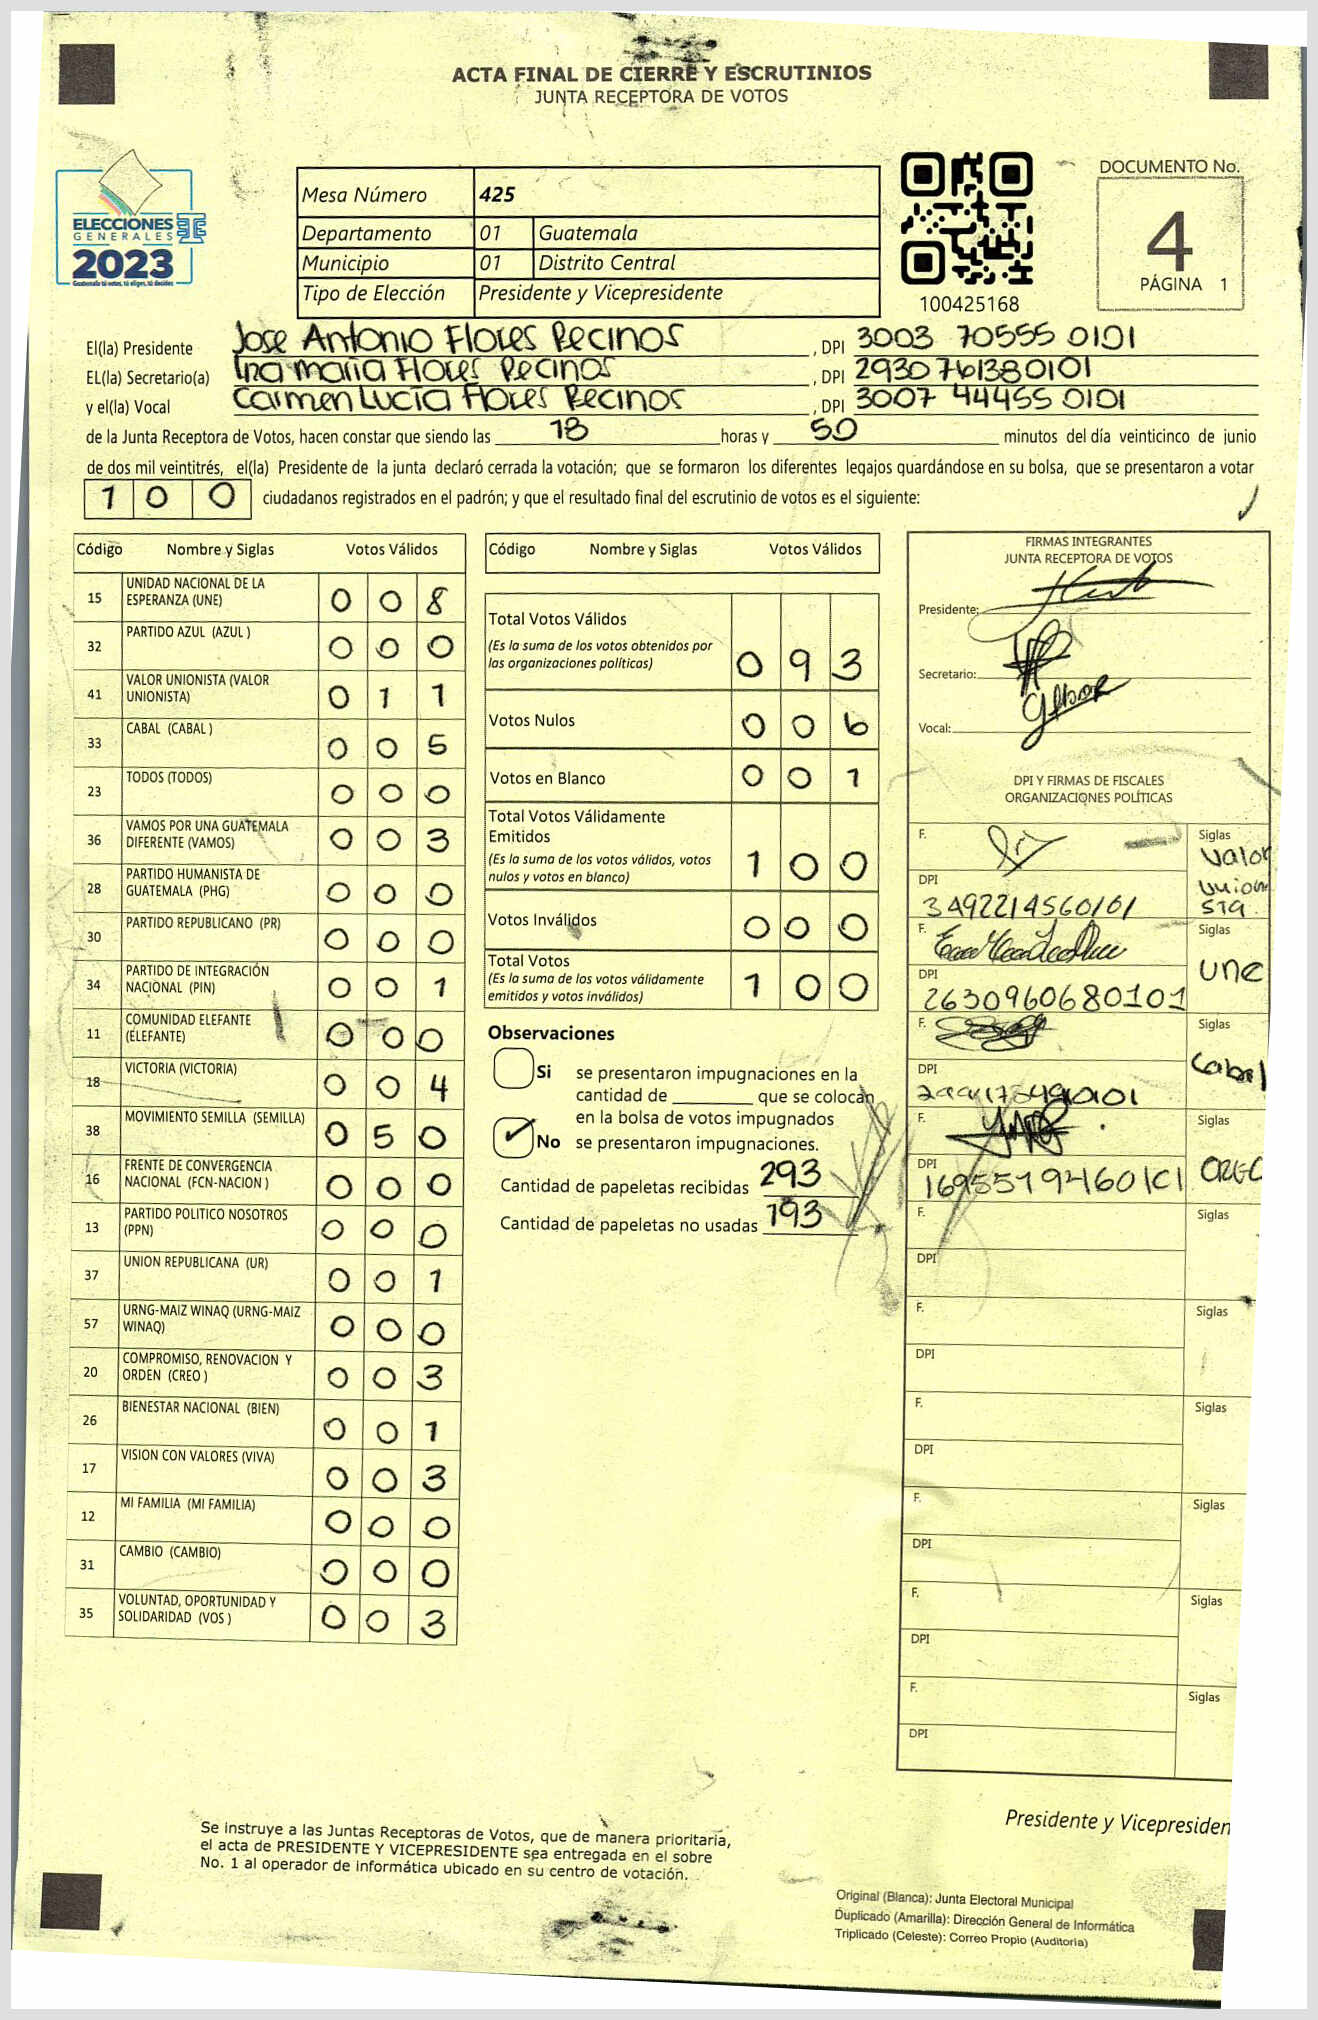 ACTA FINAL DE CIERRE Y ESCRUTINIOS
JUNTA RECEPTORA DE VOTOS
ELECCIONES
GENERALES
2023
Guatemala tú votas, tú eliges, tú decides
Mesa Número 425
Departamento 01 Guatemala
Municipio 01 Distrito Central
Tipo de Elección Presidente y Vicepresidente
100425168
DOCUMENTO No.
4
PÁGINA 1
El(la) Presidente Jose Antonio Flores Recinos, DPI 3003 70555 0101
EL(la) Secretario(a) Ana María Flores Recinos, DPI 2930761380101
y el(la) Vocal Carmen Lucía Flores Recinos, DPI 3007 44455 0101
de la Junta Receptora de Votos, hacen constar que siendo las 18 horas y 50 minutos del día veinticinco de junio
de dos mil veintitrés, el(la) Presidente de la junta declaró cerrada la votación; que se formaron los diferentes legajos guardándose en su bolsa, que se presentaron a votar
1 0 0 ciudadanos registrados en el padrón; y que el resultado final del escrutinio de votos es el siguiente:
Código Nombre y Siglas Votos Válidos
15 UNIDAD NACIONAL DE LA
ESPERANZA (UNE) 0 0 8
32 PARTIDO AZUL (AZUL ) 0 0 0
41 VALOR UNIONISTA (VALOR
UNIONISTA) 0 1 1
33 CABAL (CABAL ) 0 0 5
23 TODOS (TODOS) 0 0 0
36 VAMOS POR UNA GUATEMALA
DIFERENTE (VAMOS) 0 0 3
28 PARTIDO HUMANISTA DE
GUATEMALA (PHG) 0 0 0
30 PARTIDO REPUBLICANO (PR) 0 0 0
34 PARTIDO DE INTEGRACIÓN
NACIONAL (PIN) 0 0 1
11 COMUNIDAD ELEFANTE
(ELEFANTE) 0 0 0
18 VICTORIA (VICTORIA) 0 0 4
38 MOVIMIENTO SEMILLA (SEMILLA) 0 5 0
16 FRENTE DE CONVERGENCIA
NACIONAL (FCN-NACION ) 0 0 0
13 PARTIDO POLITICO NOSOTROS
(PPN) 0 0 0
37 UNION REPUBLICANA (UR) 0 0 1
57 URNG-MAIZ WINAQ (URNG-MAIZ
WINAQ) 0 0 0
20 COMPROMISO, RENOVACION Y
ORDEN (CREO ) 0 0 3
26 BIENESTAR NACIONAL (BIEN) 0 0 1
17 VISION CON VALORES (VIVA) 0 0 3
12 MI FAMILIA (MI FAMILIA) 0 0 0
31 CAMBIO (CAMBIO) 0 0 0
35 VOLUNTAD, OPORTUNIDAD Y
SOLIDARIDAD (VOS ) 0 0 3
Código Nombre y Siglas Votos Válidos
Total Votos Válidos
(Es la suma de los votos obtenidos por
las organizaciones políticas) 0 9 3
Votos Nulos 0 0 6
Votos en Blanco 0 0 1
Total Votos Válidamente
Emitidos
(Es la suma de los votos válidos, votos
nulos y votos en blanco) 1 0 0
Votos Inválidos 0 0 0
Total Votos
(Es la suma de los votos válidamente
emitidos y votos inválidos) 1 0 0
Observaciones
Si se presentaron impugnaciones en la
cantidad de ________ que se colocan
en la bolsa de votos impugnados
No se presentaron impugnaciones.
Cantidad de papeletas recibidas 293
Cantidad de papeletas no usadas 193
FIRMAS INTEGRANTES
JUNTA RECEPTORA DE VOTOS
Presidente:
Secretario:
Vocal:
DPI Y FIRMAS DE FISCALES
ORGANIZACIONES POLÍTICAS
F. Siglas
Valor
Unionista
DPI
3492214560101
F. Siglas
une
DPI
2630960680101
F. Siglas
Cabal
DPI
F. Siglas
CREO
DPI
F. Siglas
DPI
F. Siglas
DPI
F. Siglas
DPI
F. Siglas
DPI
F. Siglas
DPI
F. Siglas
DPI
Presidente y Vicepresiden
Se instruye a las Juntas Receptoras de Votos, que de manera prioritaria,
el acta de PRESIDENTE Y VICEPRESIDENTE sea entregada en el sobre
No. 1 al operador de informática ubicado en su centro de votación.
Original (Blanca): Junta Electoral Municipal
Duplicado (Amarilla): Dirección General de Informática
Triplicado (Celeste): Correo Propio (Auditoria)